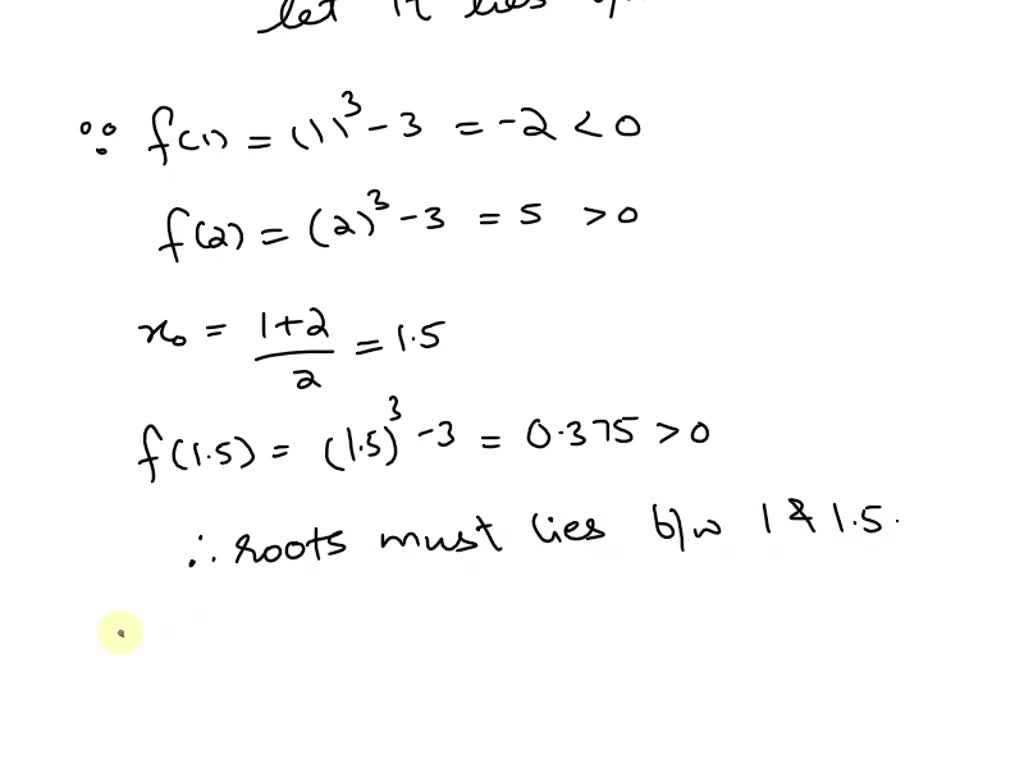 let it lies
∵ f(1) = (1)³ - 3 = -2 < 0
f(2) = (2)³ - 3 = 5 > 0
x₀ = (1+2)/2 = 1.5
f(1.5) = (1.5)³ - 3 = 0.375 > 0
∴ roots must lies b/w 1 & 1.5.